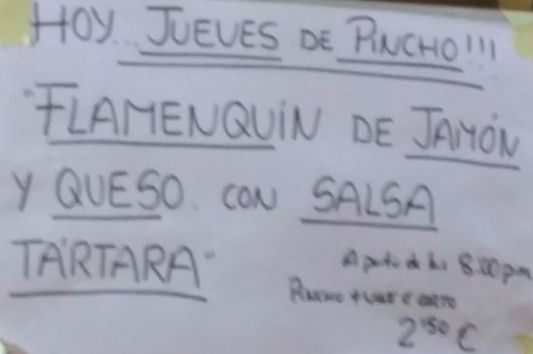 HOY... JUEVES DE PINCHO!!!
"FLAMENQUÍN DE JAMÓN
Y QUESO CON SALSA
TÁRTARA"
A partir de las 8:00 pm
Pincho +
2'50 €